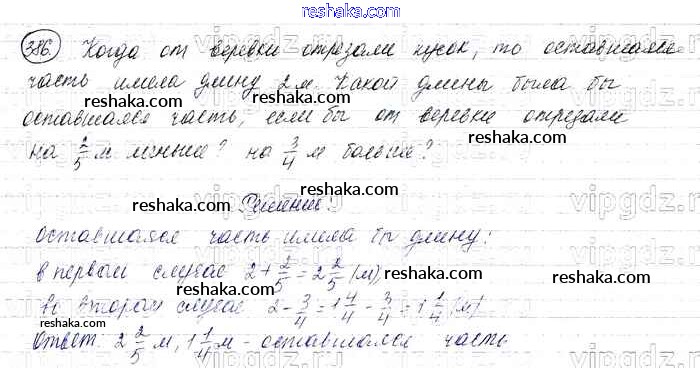 reshaka.com
386. Когда от веревки отрезали кусок, то оставшаяся
reshaka.com
часть имела длину 2 м. Какой длины была бы
reshaka.com
оставшаяся часть, если бы от веревки отрезали
на 2/5 м меньше? на 3/4 м больше?
reshaka.com
reshaka.com
Решение:
reshaka.com
Оставшаяся часть имела бы длину:
reshaka.com
в первом случае 2+2/5=2 2/5 (м)
во втором случае 2-3/4=1 4/4-3/4=1 1/4 (м)
reshaka.com
Ответ: 2 2/5 м, 1 1/4 м - оставшаяся часть
reshaka.com
vipgdz.ru